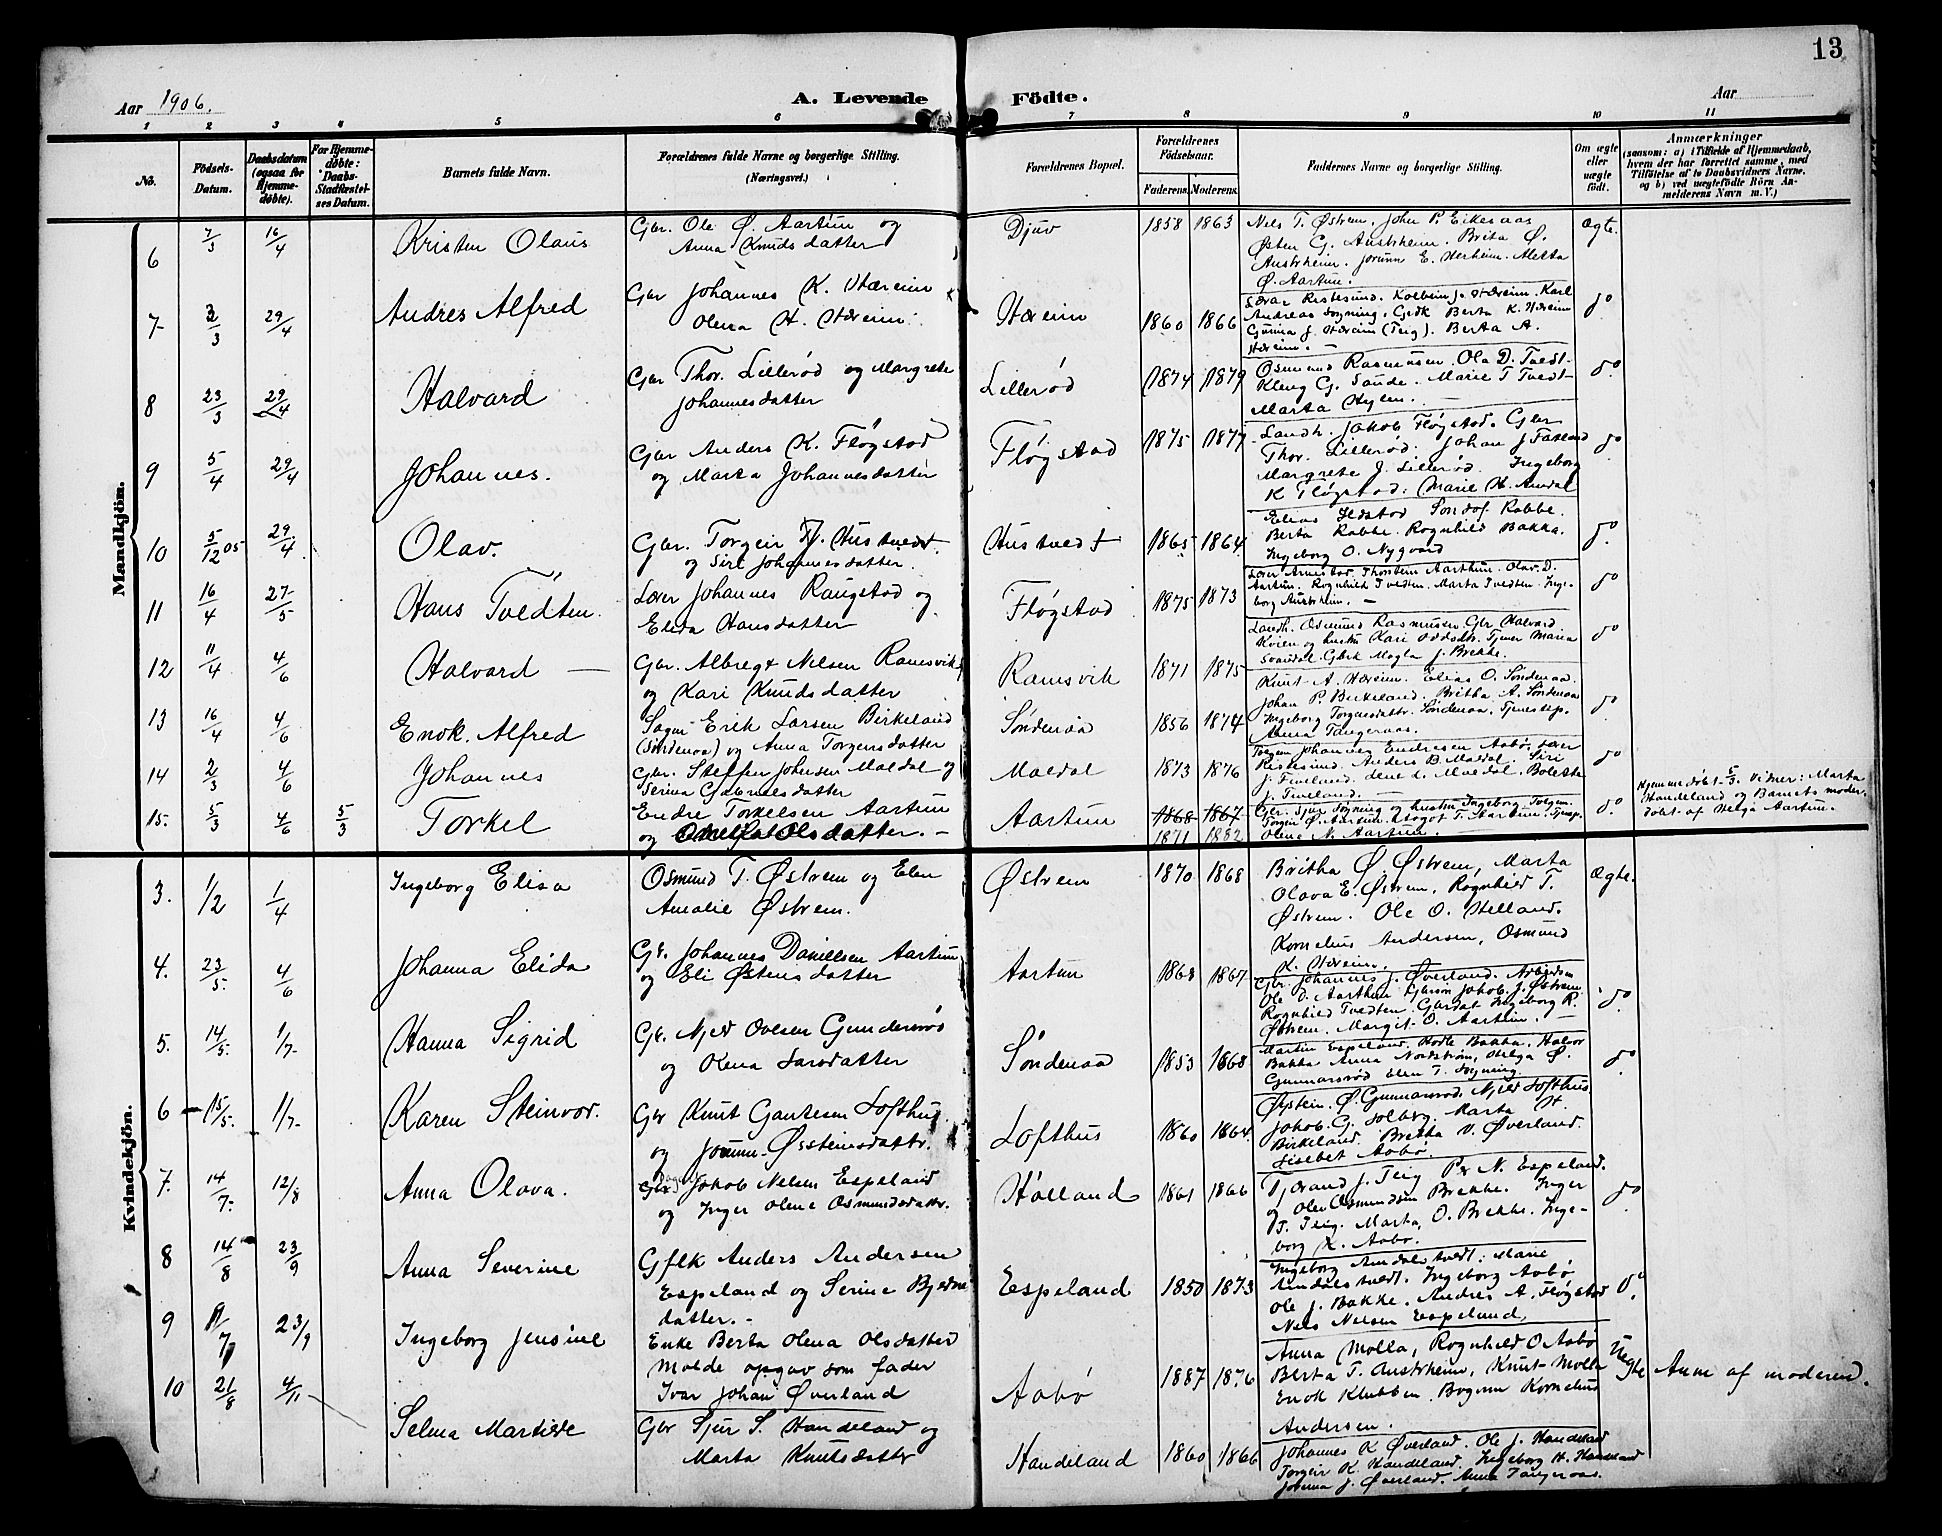 13
Aar 1906.
A. Levende Födte.
Aar
1 2 3 4 5 6 7 8 9 10 11
No.
Födsels-Datum.
Daabsdatum (ogsaa for Hjemme-døbte).
For Hjemme-døbte: Daabs-Stadfæstel-ses Datum.
Barnets fulde Navn.
Forældrenes fulde Navne og borgerlige Stilling.
(Næringsvei.)
Forældrenes Bopæl.
Forældrenes Födselsaar.
Faderens. Moderens.
Faddernes Navne og borgerlige Stilling.
Om ægte eller uægte födt.
Anmærkninger
(saasom: a) i Tilfælde af Hjemmedaab,
hvem der har forrettet samme, med
Tilföielse af to Daabsvidners Navne,
og b) ved uægtefödte Börn An-
melderens Navn m. V.)
Mandkjön.
6 7/3 16/4 Kristen Olaus
Gbr. Ole Ø. Aartun og
Anna Knudsdatter
Djuv 1858 1863
Nels T. Østrem. John P. Eikesaas
Østen G. Austrheim. Brita Ø.
Austrheim. Jorunn E. Herheim. Metta
Ø. Aartun.
Ægte.
7 2/3 29/4 Andres Alfred
Gbr Johannes K. Hæreim
Olena H. Hæreim.
Hæreim 1860 1866
Lærar Ristesund. Kolbein J. Hæreim. Karl
Andreas Sogning. Gbrk Berta K. Hæreim
Gunna J. Hæreim (Teig). Berta A.
Hæreim.
do
8 23/3 29/4 Halvard
Gbr Thor. Lillerød og Margrete
Johannesdatter
Lillerød 1874 1879
Osmund Rasmussen. Ola D. Tvedt
Kleng G. Saude. Marie T Tvedt
Marta Hylen.
do
9 5/4 29/4 Johannes.
Gbr Anders K. Fløgstad
og Marta Johannesdatter
Fløgstad 1875 1877
Landh. Jakob Fløgstad. Gbr
Thor. Lillerød. Johan J Fatland
Margrete J. Lillerød. Ingeborg
K Fløgstad. Marie H. Amdal
do
10 5/12 05 29/4 Olav.
Gbr. Torgeir J. Hustvedt
og Siri Johannesdatter.
Hustvedt 1865 1864
Elias Ilstad Sondof Rabbe.
Berta Rabbe. Rognhild Bakka.
Ingeborg O. Nygaard
do
11 16/4 27/5 Hans Tvedten.
Lærer Johannes Raugstad og
Elida Hansdatter
Fløgstad 1875 1873
Lærer Arnestad. Thorstein Aarthun. Olav. D.
Aartun. Rognhild Tvedten. Marta Tvedten. Inge-
borg Austrheim.
do
12 11/4 4/6 Halvard
Gbr. Albregt Nilsen Ramsvik
og Kari Knudsdatter
Ramsvik 1871 1875
Landh. Osmund Rasmussen Gbr Halvard
Kvien og hustru Kari Oddsdtr. Tjener Maria
Svandal. Gbrk Magla J. Brekke.
do
13 16/4 4/6 Enok. Alfred
Sagm Erik Larsen Birkeland
(Søndenaa) og Anna Torgersdatter
Søndenaa 1856 1874
Knut A. Hæreim. Elias O. Søndenaa.
Johan P. Birkeland. Britha A. Søndenaa
Ingeborg Torgersdattr. Søndenaa. Tjenestep.
Anna Tangeraas.
do
14 2/3 4/6 Johannes
Gbr. Steffen Johnsen Maldal og
Serina Gabrielsdatter
Maldal 1873 1876
Johannes Endresen Aabø. Lærer
Ristesund. Anders B. Maldal. Siri
J. Tveland. Maldal. Boletta
J. Tveland.
do
15. 5/3 4/6 5/3 Torkel
Endre Torkelsen Aartun
og Olsdatter.
Aartun 1868 1867
1871 1882
Gbr. Sjur Sogning og hustru Ingeborg Torgem.
Torgir Ø. Aartun. Magot T. Aartun. Tjenp.
Olena N. Aartun.
do
Hjemmedöbt 5/3. Vitner: Marta
Handeland og Barnets moder
døbt af Helga Aartun.
Kvindekjön.
3. 1/2 1/4 Ingeborg Elisa
Osmund T. Østrem og Elen
Amalie Østrem.
Østrem 1870 1868
Britha Ø. Østrem, Marta
Olava E. Østrem, Rognhild T.
Østrem. Ole O. Helland.
Kornelius Andersen, Osmund
K. Hæreim.
Ægte.
4. 23/5. 4/6 Johanna Elida
Gbr. Johannes Daniellsen Aartun
og Eli Østensdatter
Aartun 1868 1867
Gbr. Johannes J. Øverland. Arbeidsm
Ole D. Aarthun Gbrsøn Jakob. J. Østrem
Rognhild Tvedten. Gbrdat Ingeborg R.
Østrem. Margit. O. Aartun.
do
5. 14/5. 1/7 Hanna Sigrid
Gbr. Njeld Ovesen Gundersrød
og Olena Larsdatter
Søndenaa 1853 1868
Martin Espeland, Hodle Bakka, Halvor
Bakka Anna Nordstrøm, Helga Ø.
Gunnarsrød Elen T. Sogning.
do
6 15/5. 1/7 Karen Steinvor.
Gbr Knut Gautesen Lofthus
og Jorunn Øisteinsdattr.
Lofthus 1860 1864
Øystein. Ø. Gunnarsrød. Njeld Lofthus
Jakob. G. Solberg. Marta H.
Birkeland. Bretha V. Øverland.
Lisebet Aabø.
7. 14/7. 12/8 Anna Olava.
Jakob Nelsen Espeland
og Inger Olene Osmundsdattr.
Hølland 1861 1866
Tjerand J. Teig Per N. Espeland.
og Olen Osmundsen Brekke. Inger
T. Teig. Marta, O. Brekke. Inge-
borg K. Aabø.
do
8 14/8 23/9 Anna Severine
Gflk Anders Andersen
Espeland og Serine Bjørns
datter.
Espeland 1850 1873
Ingeborg Amdalstvedt. Marie
Amdalstvedt. Ingeborg Aabø
Ole J. Bakke. Andres A. Fløgstad
Nels Nelsen Espeland,
do
9 7 23/9 Ingeborg Jensine
Enke Berta Olena Olsdatter
Molde opgav som fader
Ivar Johan Øverland
Aabø 1887 1876
Anna Molla, Rognhild O Aabø
Berta T. Austrheim, Knut Molla
Enok Klubben. Bogmn Kornelius
Andersen.
Uegte
Anm af moderen.
10 21/8 4/11 Selma Martilde
Gbr Sjur S. Handeland og
Marta Knutsdatter
Handeland 1860 1866
Johannes K Øverland. Ole J. Handeland
Torgeir K. Handeland. Ingeborg H. Handeland
Johanna J. Øverland. Anna Tangeraas.